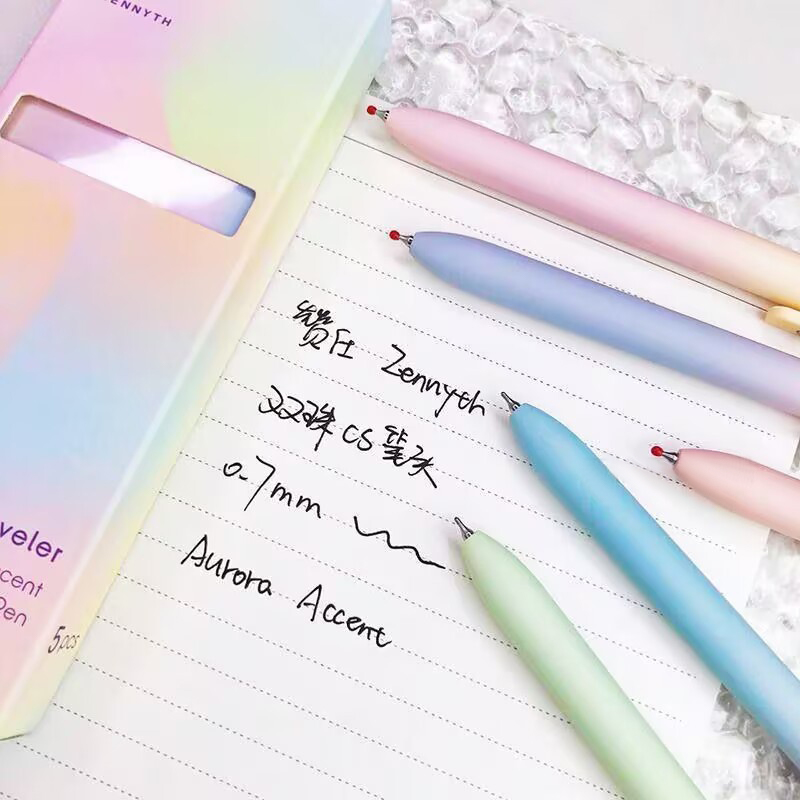 ZENNYTH
Zennyth
双珠 CS 笔头
0.7mm
Aurora Accent
veler
cent
Pen
5pcs